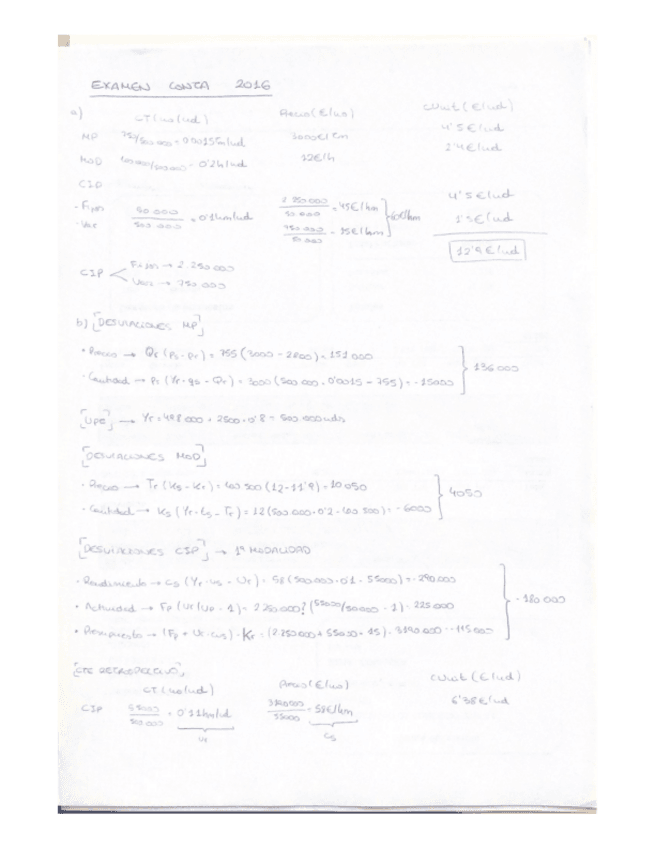 EXAMEN CONTA 2016
a) CT (uo/ud) Precio (€/uo) CUnit (€/ud)
MP 750/500.000 = 0'0015 Tm/ud 3000€/Tm 4'5 €/ud
MOD 100.000/500.000 = 0'2h/ud 12€/h 2'4€/ud
CIP
- Fijos 50.000/500.000 = 0'1hm/ud 2.250.000/50.000 = 45€/hm 60€/hm 4'5 €/ud
- Var 750.000/50.000 = 15€/hm 1'5€/ud
12'9 €/ud
CIP Fijos → 2.250.000
Var → 750.000
b) [DESVIACIONES MP]
• Precio → Qr (Ps - Pr) = 755 (3000 - 2800) = 151 000
- Cantidad → (Yr · qs - Qr) = 3000 (500 000 · 0'0015 - 755) = - 15000 136 000
[UPE] → Yr = 498 000 + 2500 · 0'8 = 500.000 uds
[DESVIACIONES MOD]
- Precio → Tr (Ks - Kr) = 100 500 (12 - 11'9) = 10 050
- Cantidad → Ks (Yr · ts - Tr) = 12 (500.000 · 0'2 - 100 500) = - 6000 4050
[DESVIACIONES CIP] → 1ª MODALIDAD
- Rendimiento → Cs (Yr · us - Ur) = 58 (500.000 · 0'1 - 55000) = - 290.000
• Actividad → Fp (Ur/Up - 1) = 2 250.000 (55000/50000 - 1) = 225.000
• Presupuesto → (Fp + Ur · cus) - Kr = (2.250.000 + 55000 · 15) - 3190.000 = - 115 000 - 180 000
[CTE RETROSPECTIVO]
CT (uo/ud) Precio (€/uo) CUnit (€/ud)
CIP 55000/500.000 = 0'11hm/ud 3190000/55000 = 58€/hm 6'38€/ud
Ur Cs